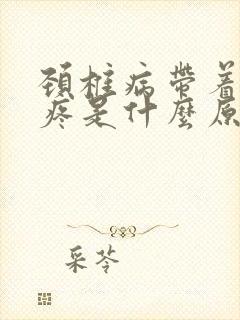 頚椎病帶着
疼是什麼原
采苓